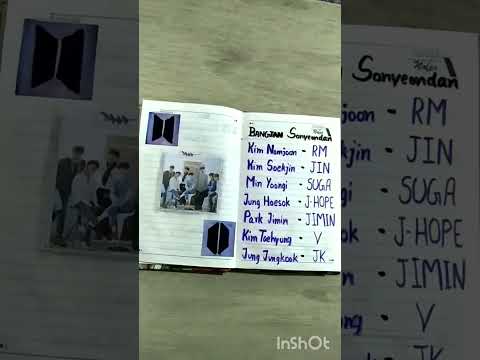 BANGTAN Sonyeondan
Kim Namjoon - RM
Kim Soekjin - JIN
Min Yoongi - SUGA
Jung Hoesok - J-HOPE
Park Jimin - JIMIN
Kim Taehyung - V
Jung Jungkook - JK
Sonyeondan
joon - RM
kjin - JIN
- SUGA
ok - J-HOPE
- JIMIN
ng - V
JK
InShOt